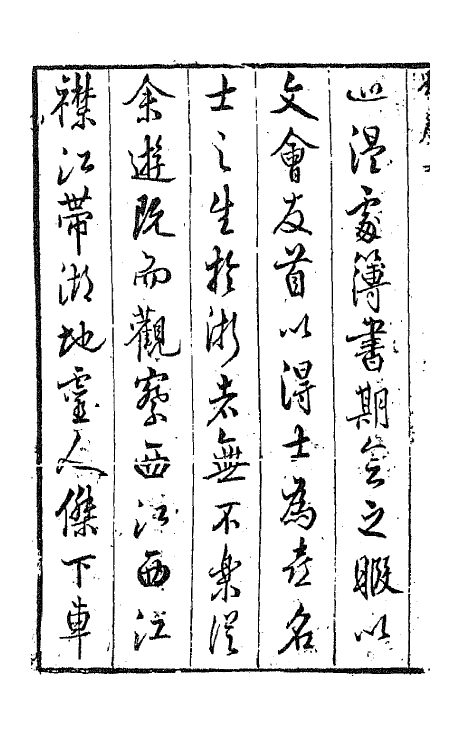 巡溫處簿書期會之暇以
文會友首以得士為喜名
士之生於浙者無不樂從
余遊既而觀察西江西江
襟江帶湖地靈人傑下車